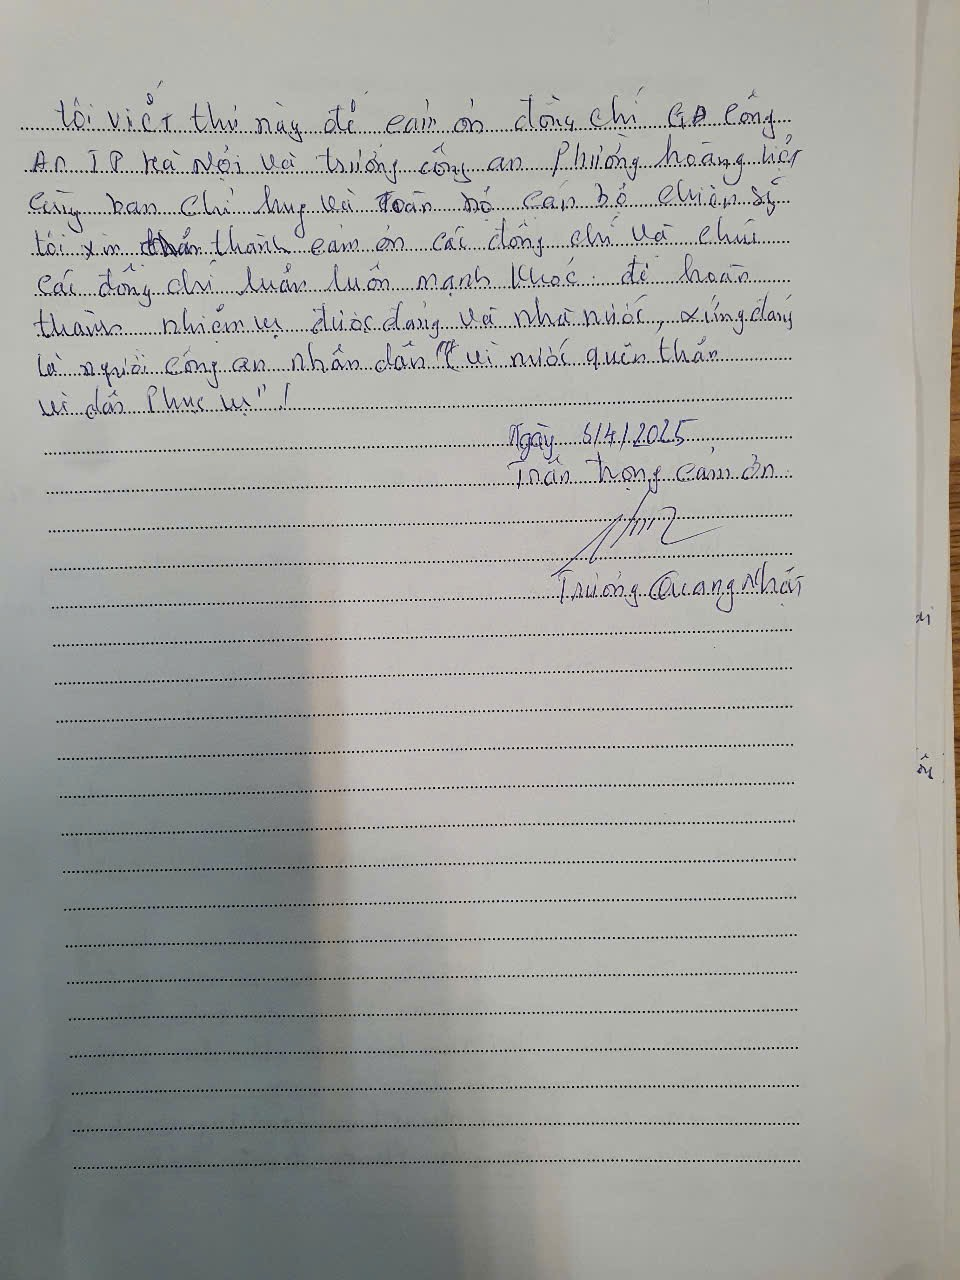 tôi viết thư này để cảm ơn đồng chí GĐ công
An TP Hà Nội và trưởng công an Phường hoàng liệt
cùng ban chỉ huy và toàn bộ cán bộ chiến sỹ
tôi xin thành cảm ơn các đồng chí và chúc
các đồng chí luôn luôn mạnh khoẻ. để hoàn
thành nhiệm vụ được đảng và nhà nước, xứng đáng
là người công an nhân dân "vì nước quên thân
vì dân Phục vụ"!
Ngày 5/4/2025
Trân trọng cảm ơn
Trương Quang Nhật